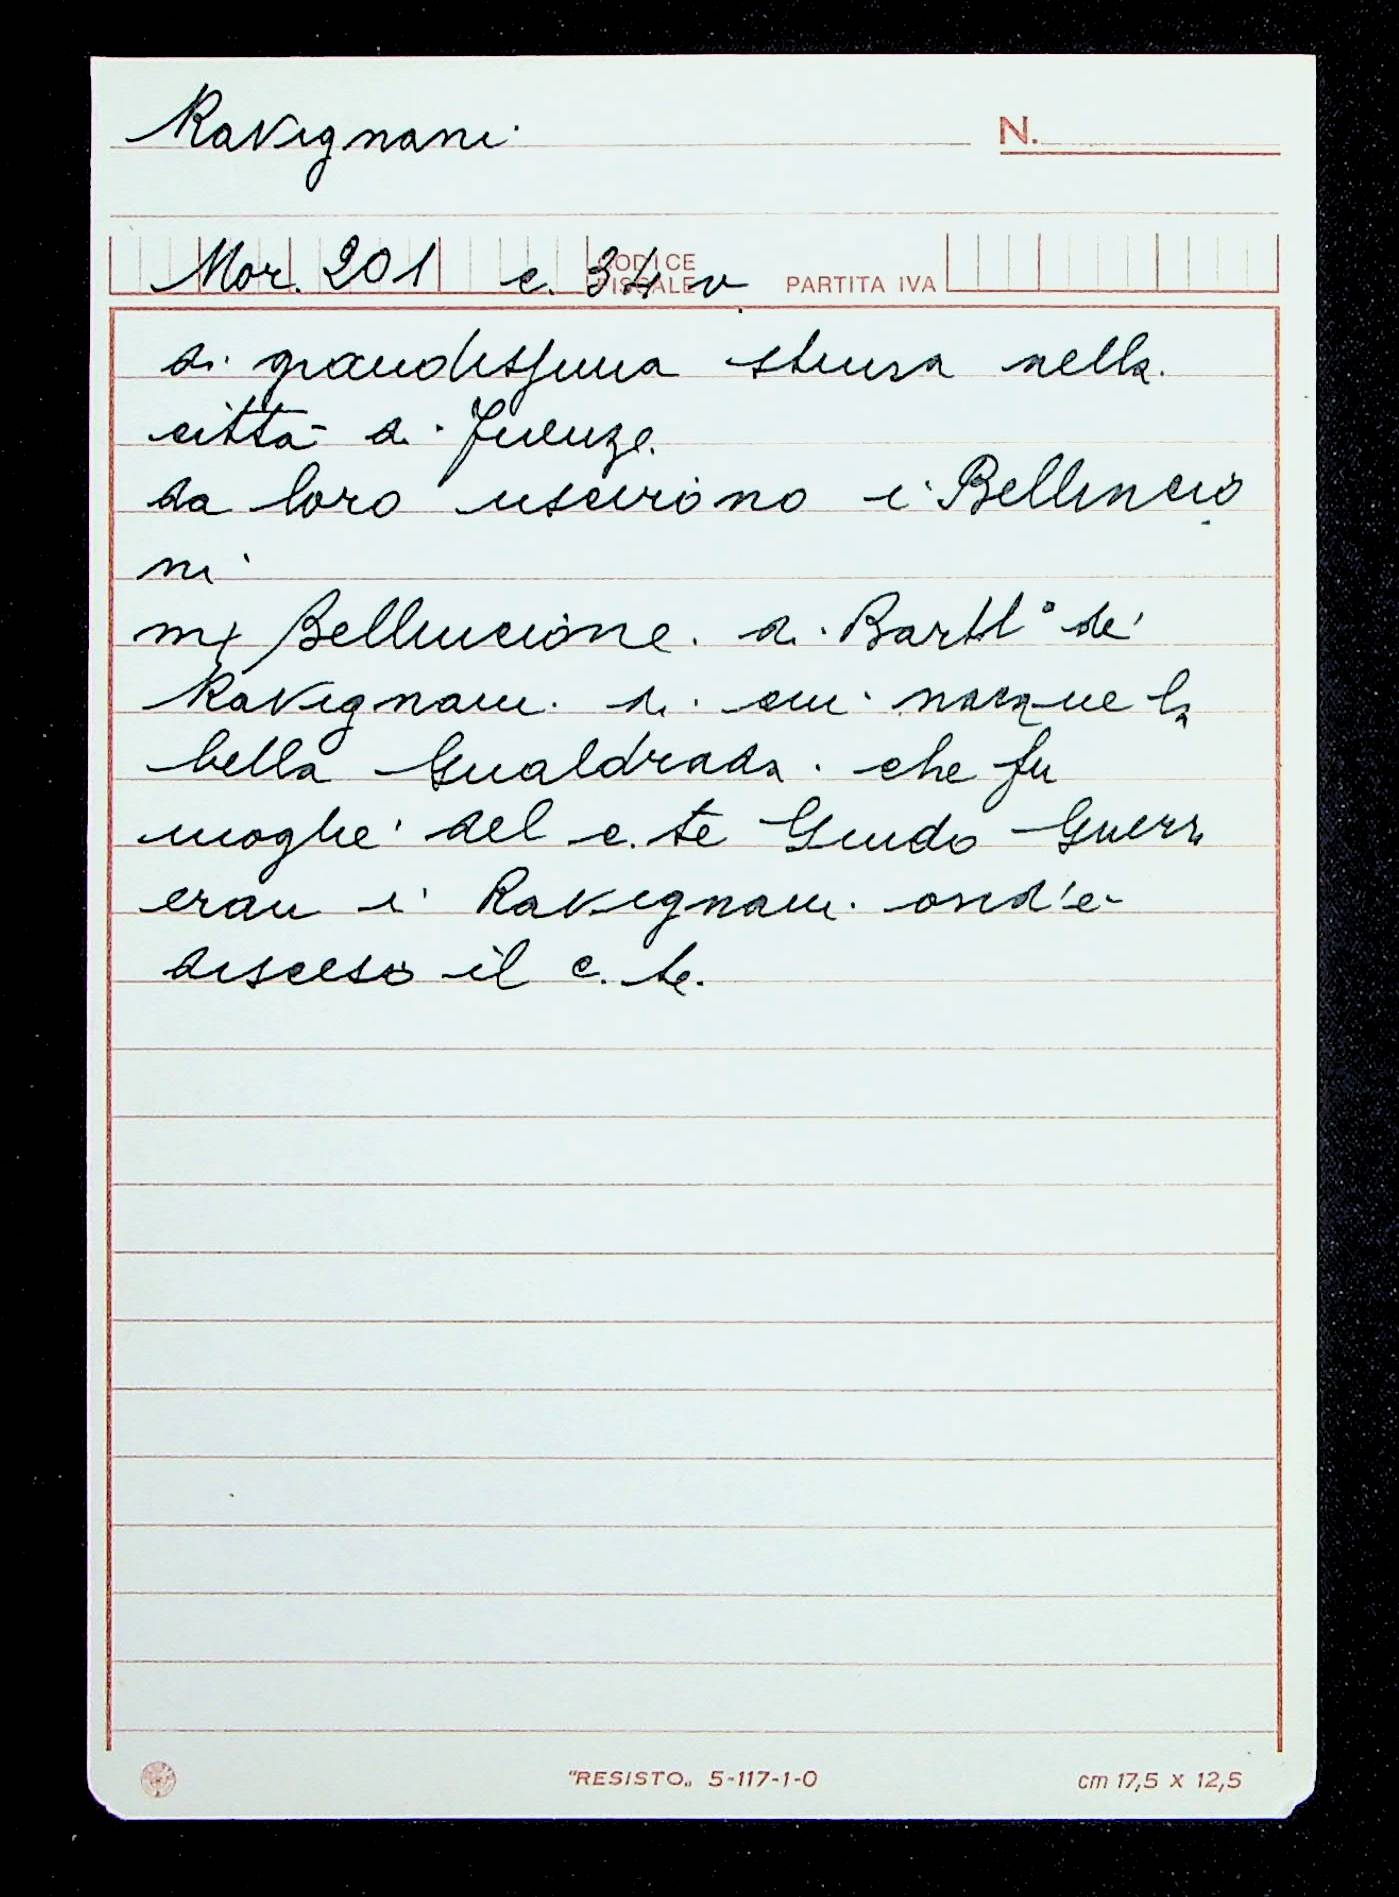 Ravignani
N.
Mor. 201 c. 34 v
CODICE FISCALE
PARTITA IVA
di grandissima stima nella
città di Firenze.
da loro uscirono i Bellincio
ni
mx Bellincione di Bartl° de'
Ravignani di cui nacque la
bella Gualdrada che fu
moglie del c.te Guido Guerr
eran i Ravignani ond'è
disceso il c.te.
"RESISTO„ 5-117-1-0
cm 17,5 x 12,5